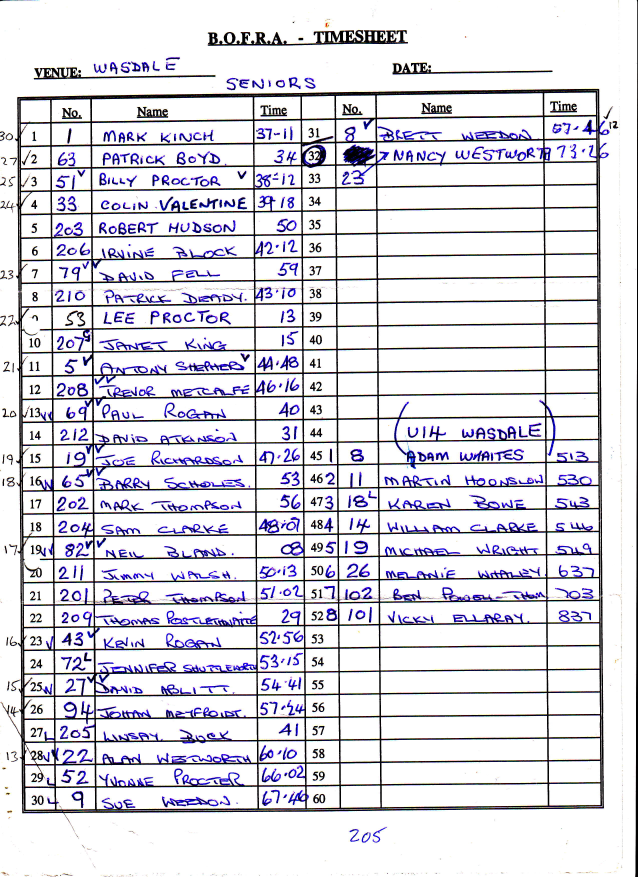 B.O.F.R.A. - TIMESHEET
VENUE: WASDALE DATE:
SENIORS
No. Name Time No. Name Time
30 1 1 MARK KINCH 37-11 31 8 BRETT WEEDON 12
27 2 63 PATRICK BOYD. 34 32 NANCY WESTWORTH 73.26
25 3 51 BILLY PROCTOR 38-12 33 23
24 4 33 COLIN VALENTINE 39 18 34
5 203 ROBERT HUDSON 50 35
6 206 IRVINE BLOCK 42.12 36
23 7 79 DAVID FELL 59 37
8 210 PATRICK DEADY. 43.10 38
22 53 LEE PROCTOR 13 39
10 207 JANET KING 15 40
21 11 5 ANTONY SHEPHERD 44.48 41
12 208 TREVOR METCALFE 46.16 42
20 13 69 PAUL ROGAN 40 43
14 212 DAVID ATKINSON 31 44 (U14 WASDALE)
19 15 19 JOE RICHARDSON 47.26 45 1 8 ADAM WHAITES 513
18 16 65 BARRY SCHOLES. 53 46 2 11 MARTIN HOONSLOW 530
17 202 MARK THOMPSON 56 47 3 18L KAREN BOWE 543
18 204 SAM CLARKE 48.01 48 4 14 WILLIAM CLARKE 546
17 19 82 NEIL BLAND. 08 49 5 19 MICHAEL WRIGHT 549
20 211 JIMMY WALSH. 50.13 50 6 26 MELANIE WHALEY 637
21 201 PETER THOMPSON 51.02 51 7 102 BEN 703
22 209 THOMAS POSTLETHWAITE 29 52 8 101 VICKY ELLARAY. 837
16 23 43 KEVIN ROGAN 52.56 53
24 72L JENNIFER SHUTTLEWORTH 53.15 54
15 25 27 DAVID ABLITT. 54.41 55
14 26 94 JOHAN 57.24 56
27 L 205 LINSAY BUCK 41 57
13 28 22 ALAN WESTWORTH 60.10 58
29 L 52 YVONNE PROCTER 66.02 59
30 L 9 SUE WEEDON. 67.46 60
205